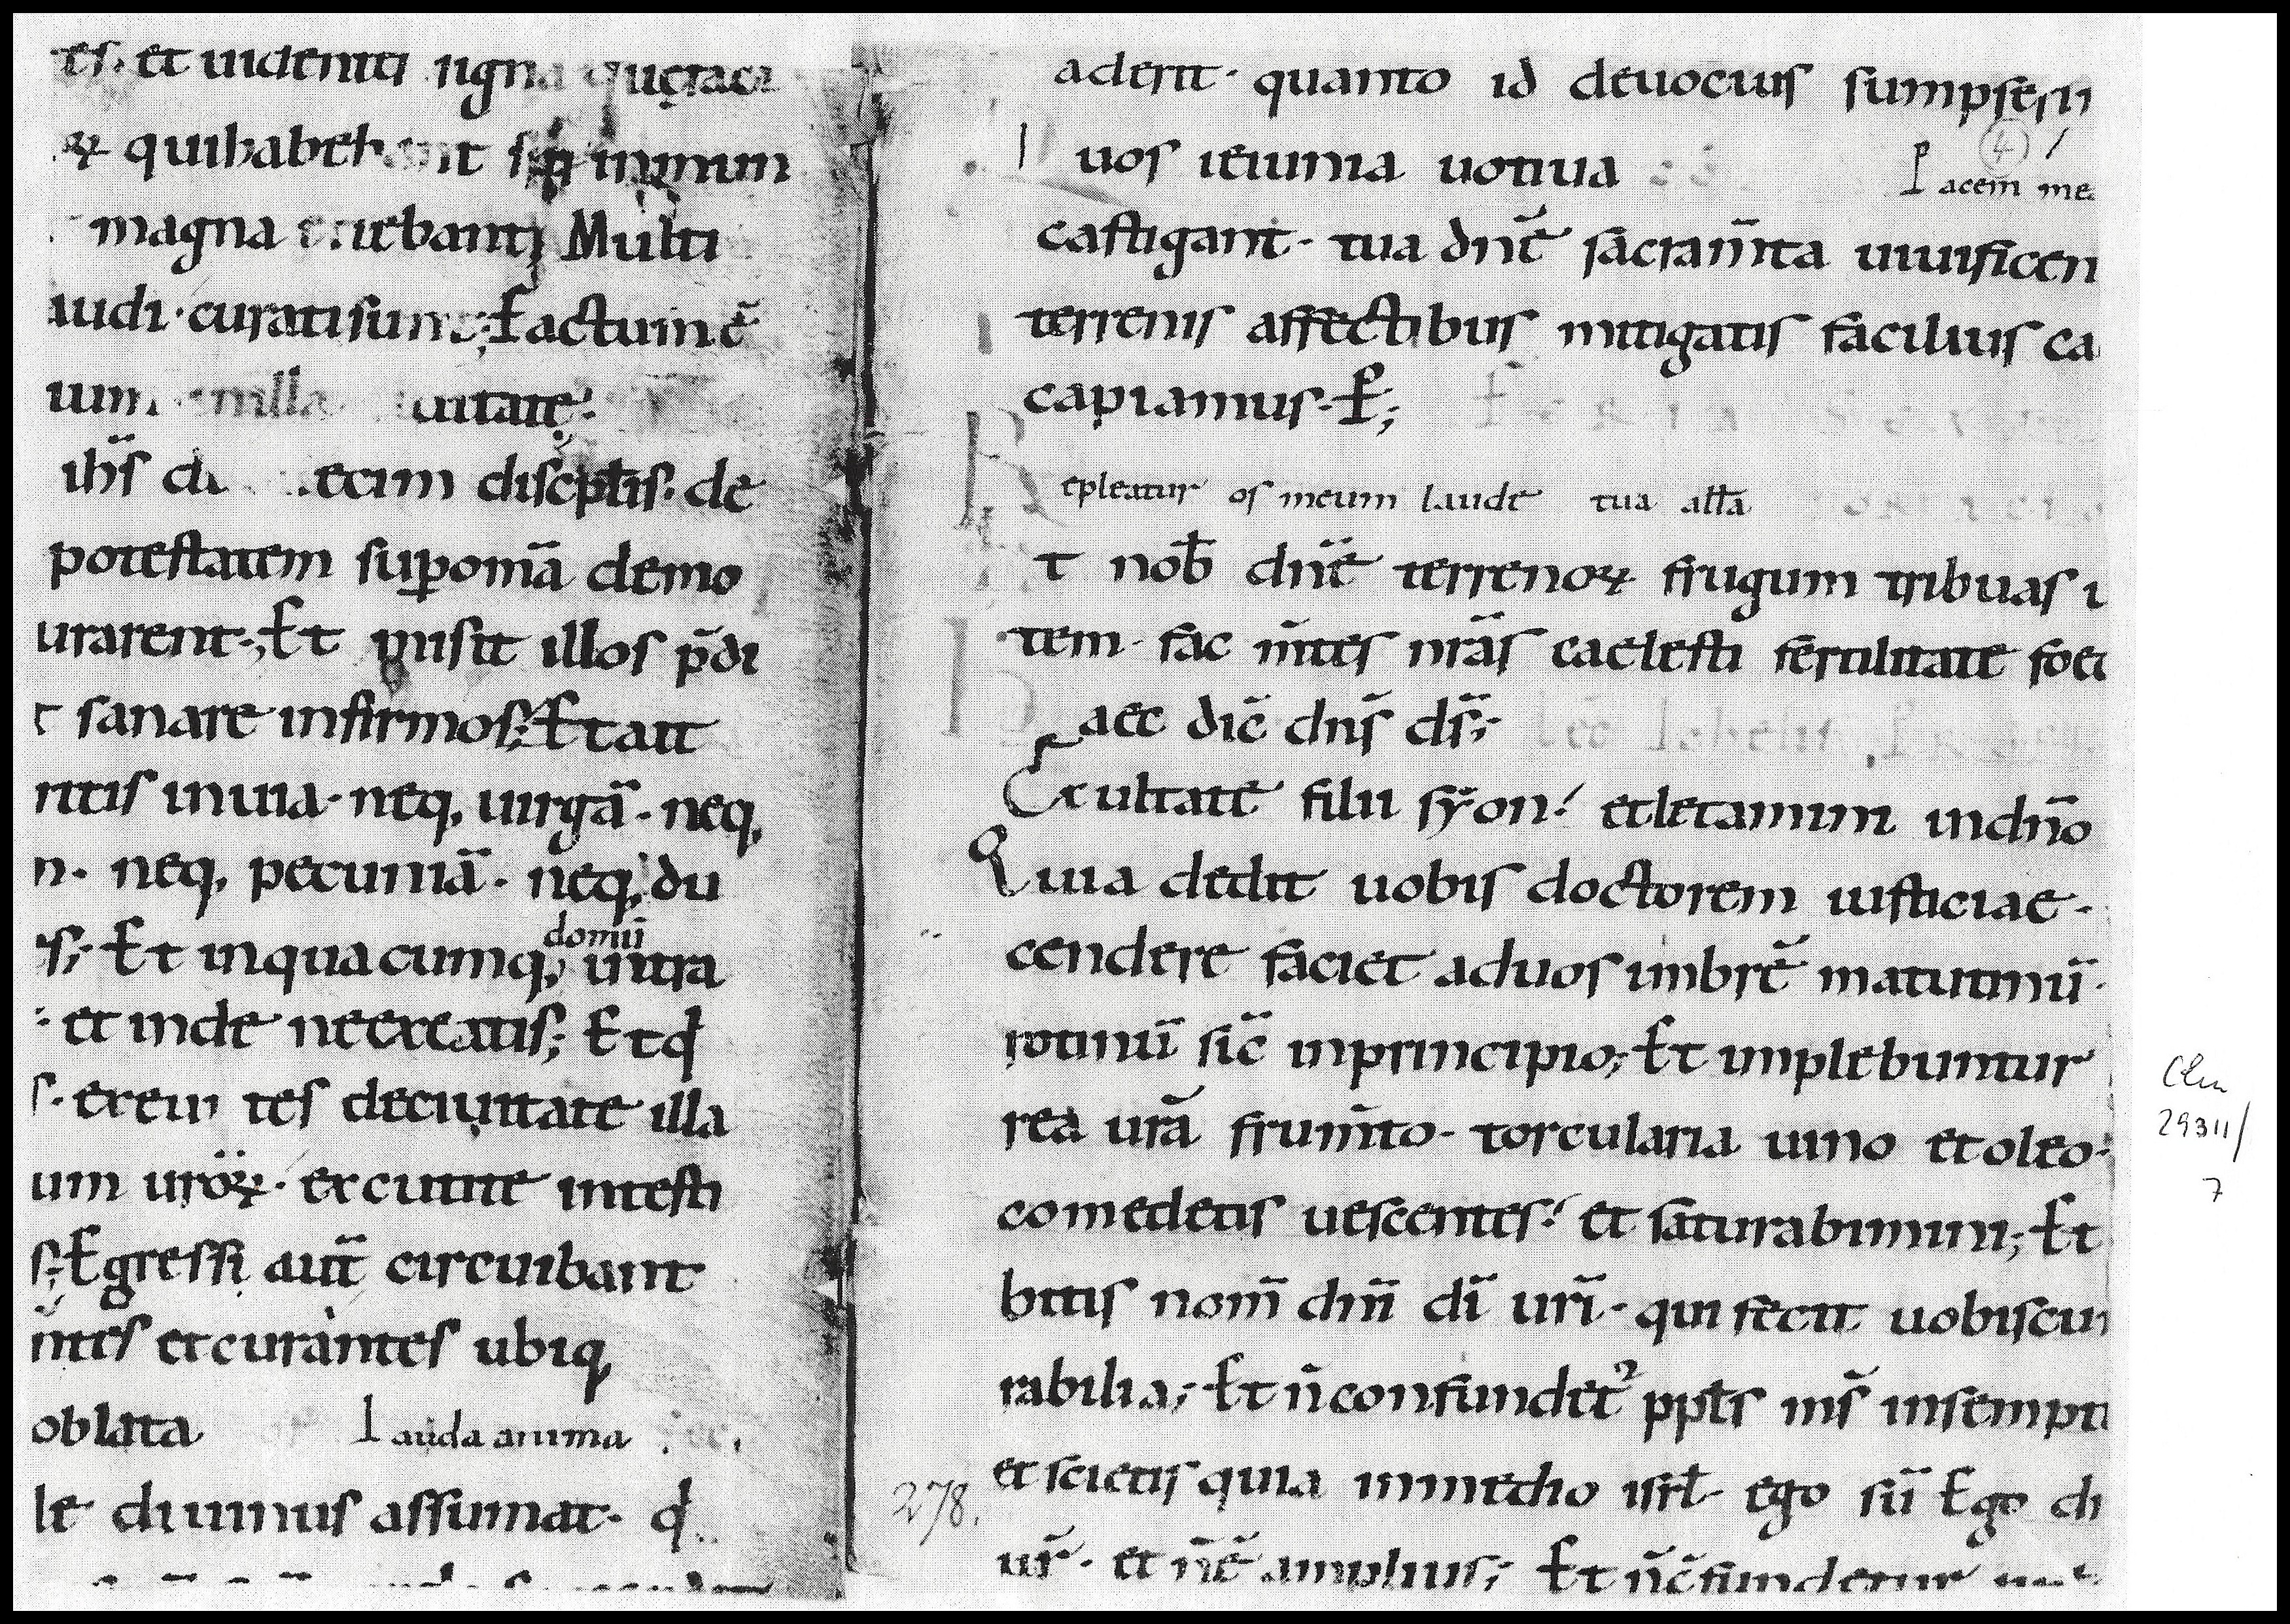 es. et uidenti signa quę faci
ꝝ qui habebant spꝰ inmun
magna cruebant; Multi
audi · curati sunt; Factum ē
um in illa ciuitate;
ihs̄ duodecim discipłis · de
potestatem suꝑ omā demo
urarent; Et misit illos p̄di
t sanare infirmos; Et ait
ritis in uia · neq; uirgā · neq;
n · neq; pecuniā · neq; du
s; Et in quacumq; domū intra
· et inde ne exeatis; Et qđ
s · exeuntes de ciuitate illa
um uroꝝ · excutite in testi
s; Egressi aut̄ circuibant
ntes et curantes ubiq;
oblata Lauda anima
le diuinus assumat · qđ
aderit · quanto id deuocius sumpseri
uos ieiunia uotiua Pacem me
4
castigant · tua dn̄e sacram̄ta uiuificen
terrenis affectibus mitigatis facilius ca
capiamus · P;
Repleatur os meum laude tua alla
t nob̄ dn̄e terrenoꝝ frugum tribuas
tem · fac m̄tes nrās caelesti fertilitate foe
Haec dic̄ dns̄ ds̄;
Exultate filii syon! et letamini in dn̄o
Quia dedit uobis doctorem iusticiae ·
cendere faciet ad uos imbrē matutinū ·
rotinū sic̄ in principio; Et implebuntur
rea urā frum̄to · torcularia uino et oleo ·
comedetis uescentes! et saturabimini; Et
bitis nom̄ dn̄i di uri · qui fecit uobiscu
rabilia; Et n̄ confundet᷑ ppłs ms̄ in sempi
et scietis quia in medio isrł ego sū Ego
278.
ur̄ · et n̄ ē amplius; Et n̄ c̄fundetur
Clm
29311/
7